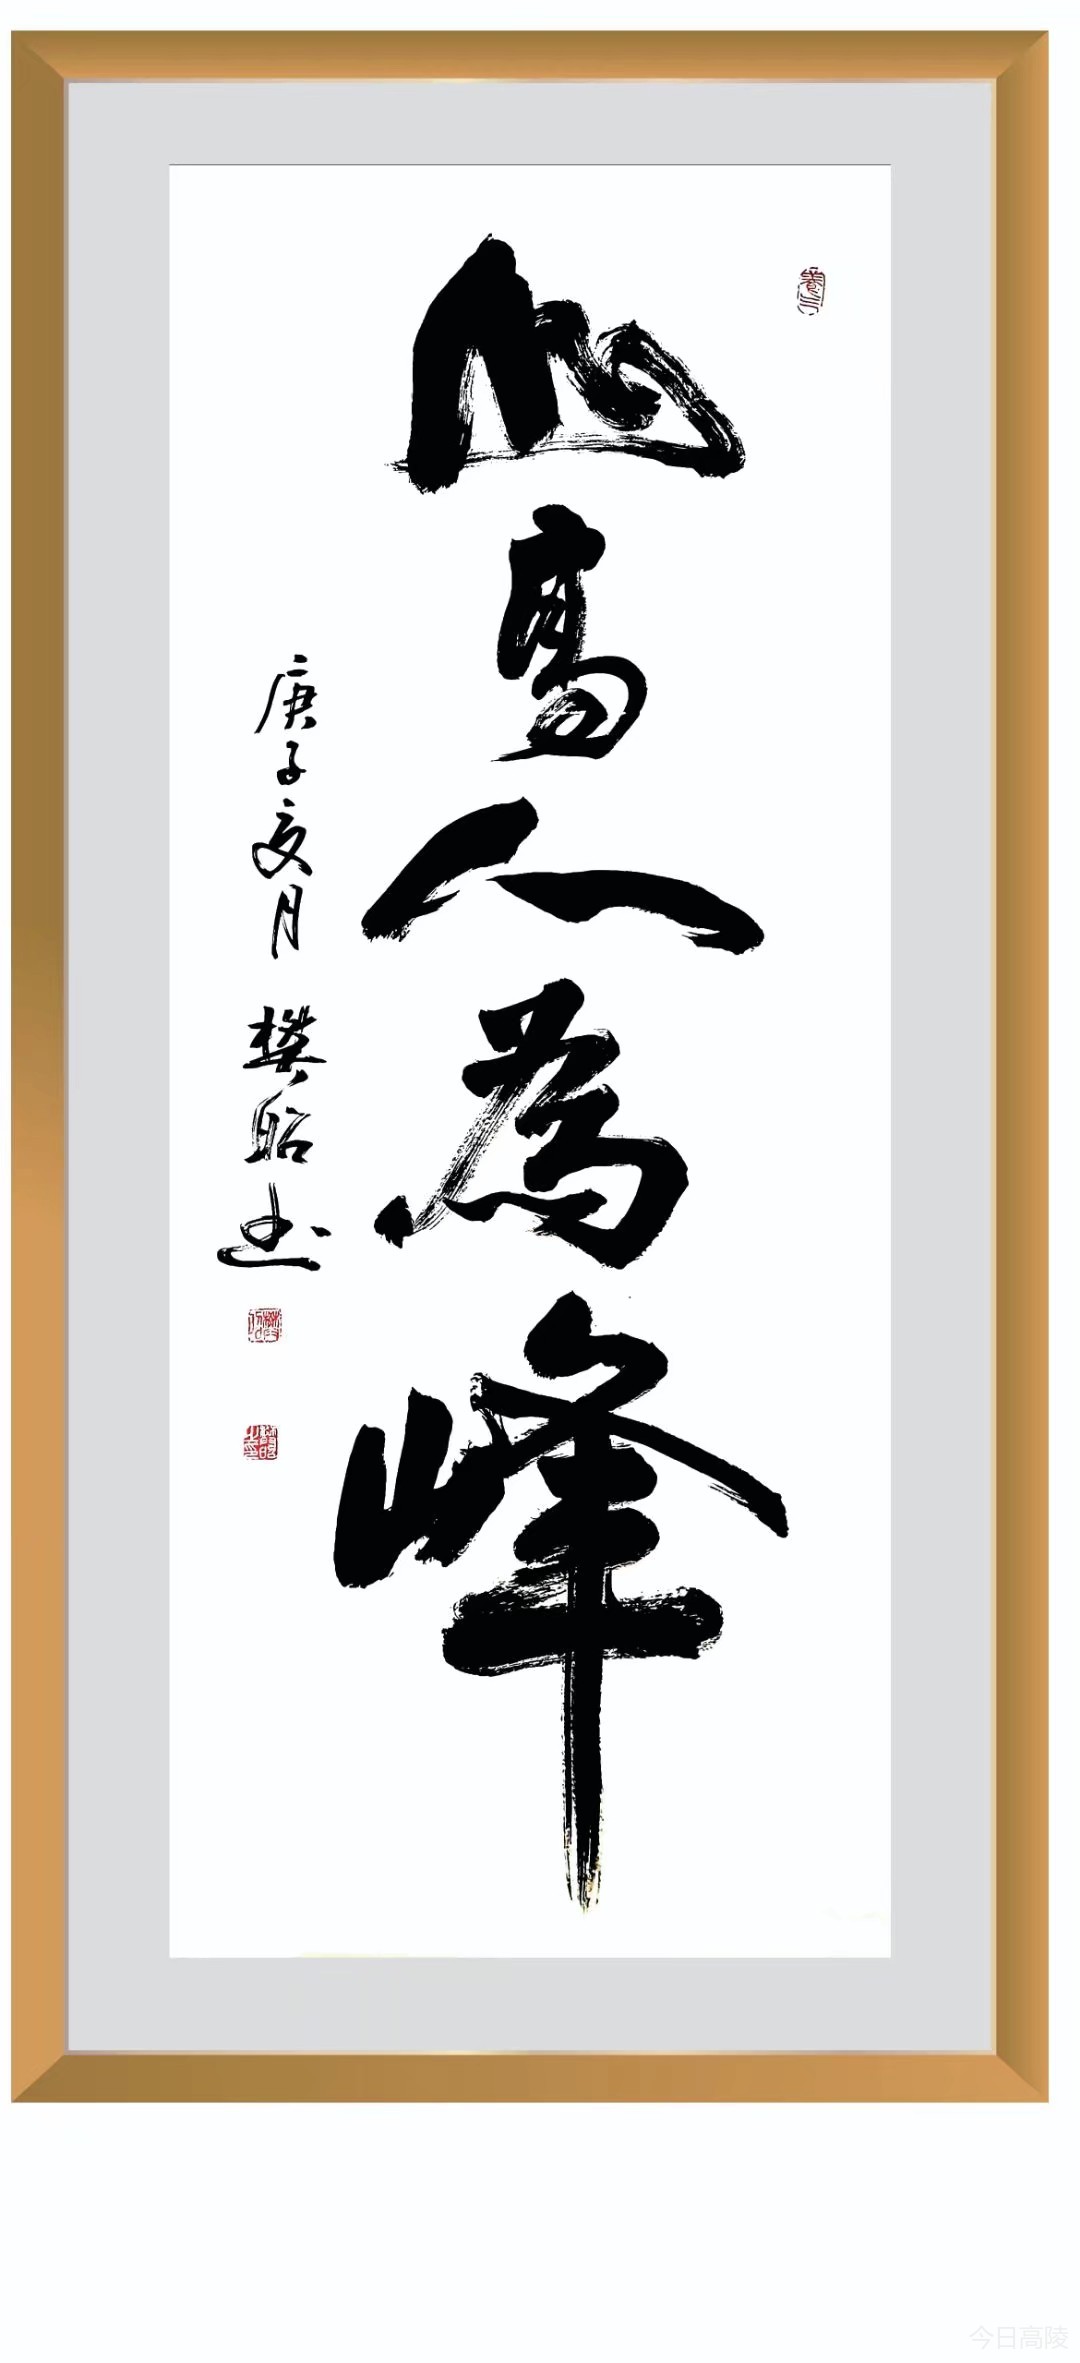 山高人為峰
庚子亥月 樊昭书
今日高陵